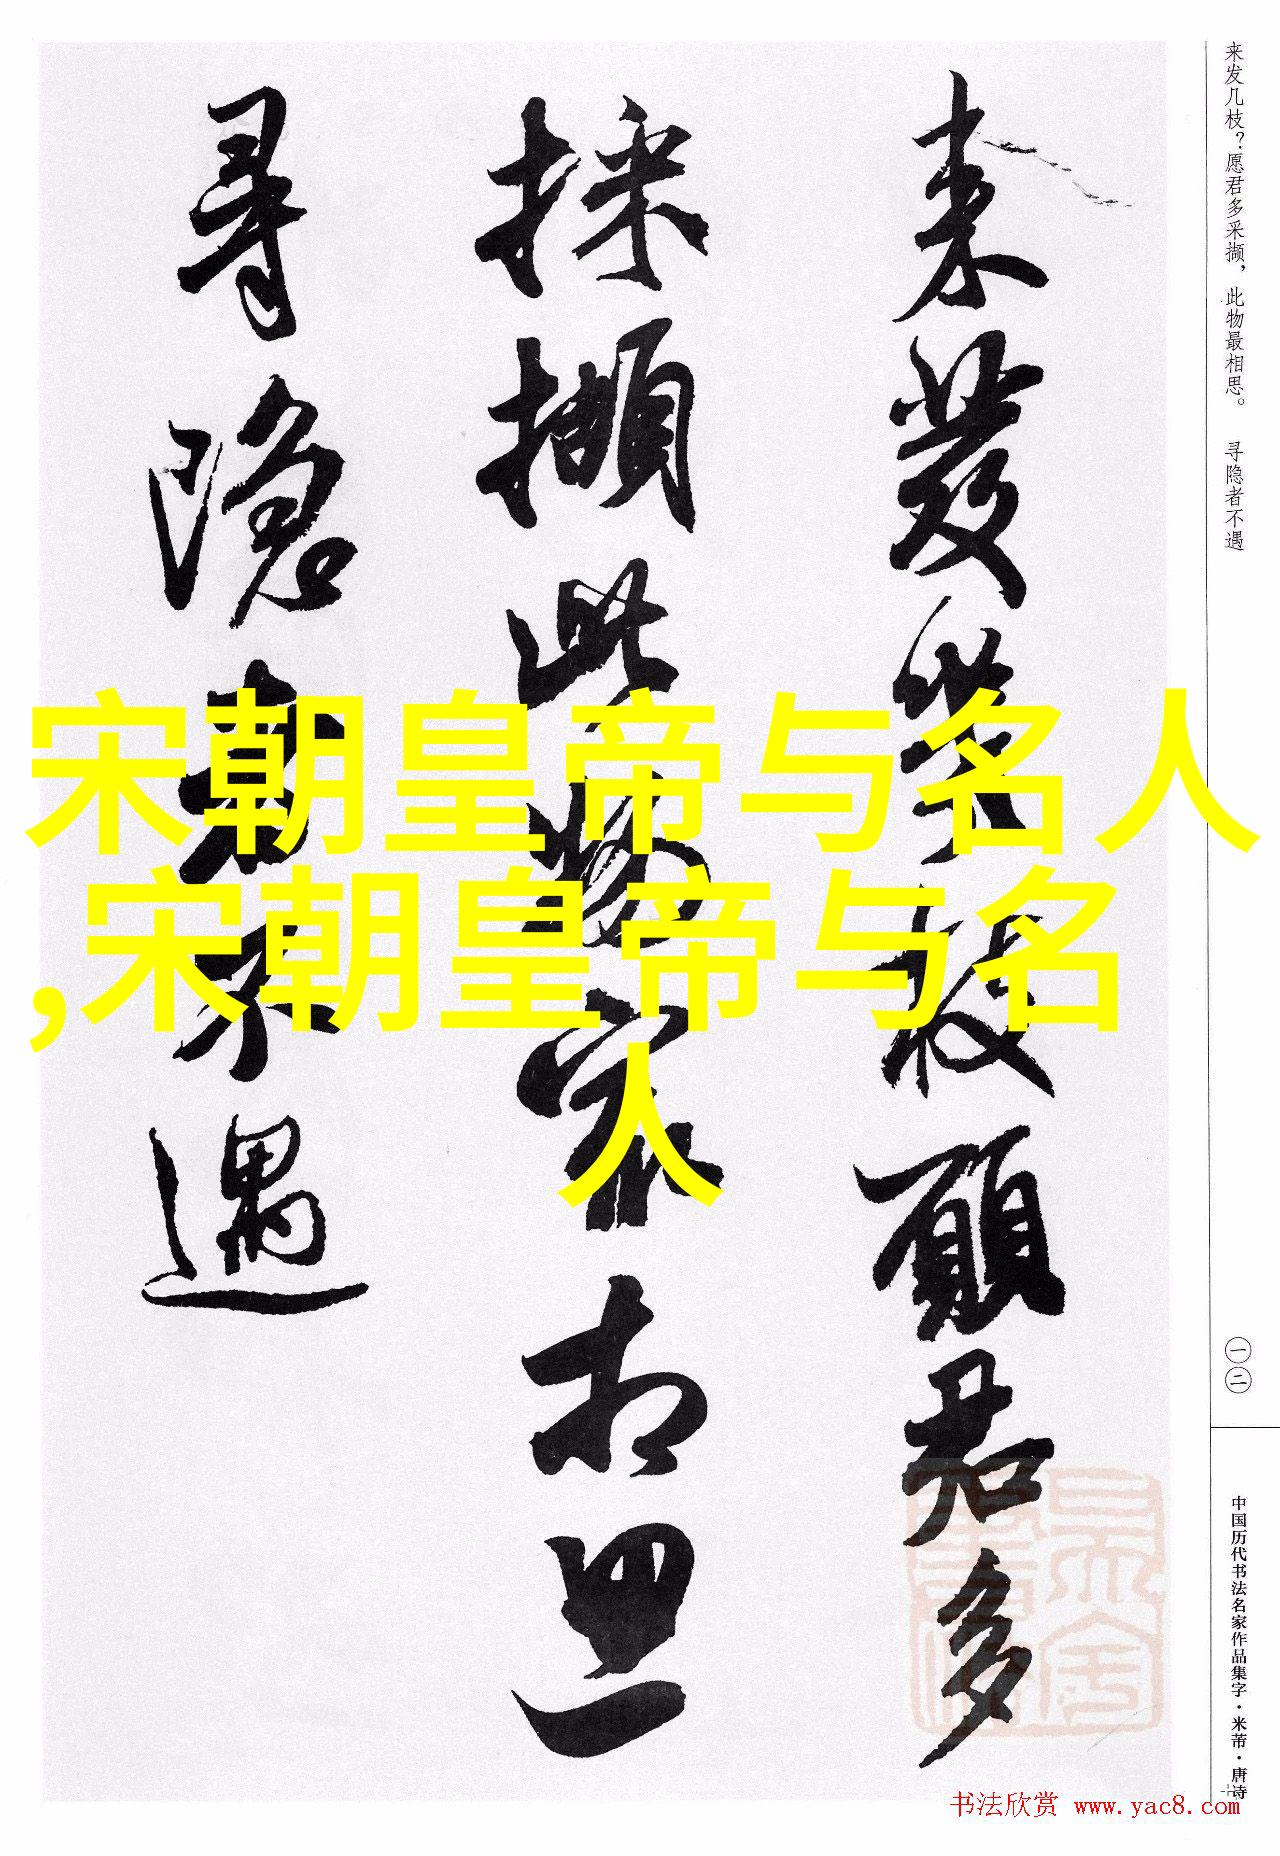 来发几枝？愿君多采撷，此物最相思。 寻隐者不遇
一二
中国历代书法名家作品集字·米芾·唐诗
来發幾枝願君多
採擷此物最相思
尋隱者不遇
宋朝皇帝与名人
,宋朝皇帝与名
人
书法欣赏 www.yac8.com